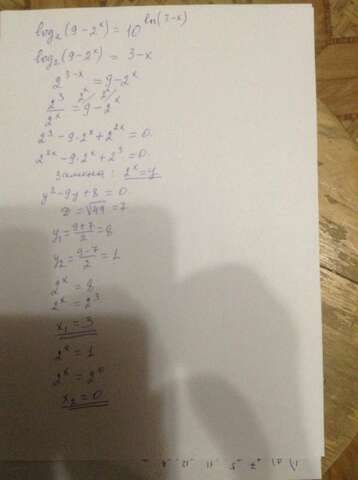 log₂(9-2ˣ) = 10^ln(3-x)
log₂(9-2ˣ) = 3-x
2³⁻ˣ = 9-2ˣ
2³/2ˣ = 9-2ˣ
2³-9·2ˣ+2²ˣ=0.
2²ˣ-9·2ˣ+2³=0.
Замена: 2ˣ=y
y²-9y+8=0.
D=√49=7
y₁=(9+7)/2=8
y₂=(9-7)/2=1
2ˣ=8
2ˣ=2³
x₁=3
2ˣ=1
2ˣ=2⁰
x₂=0